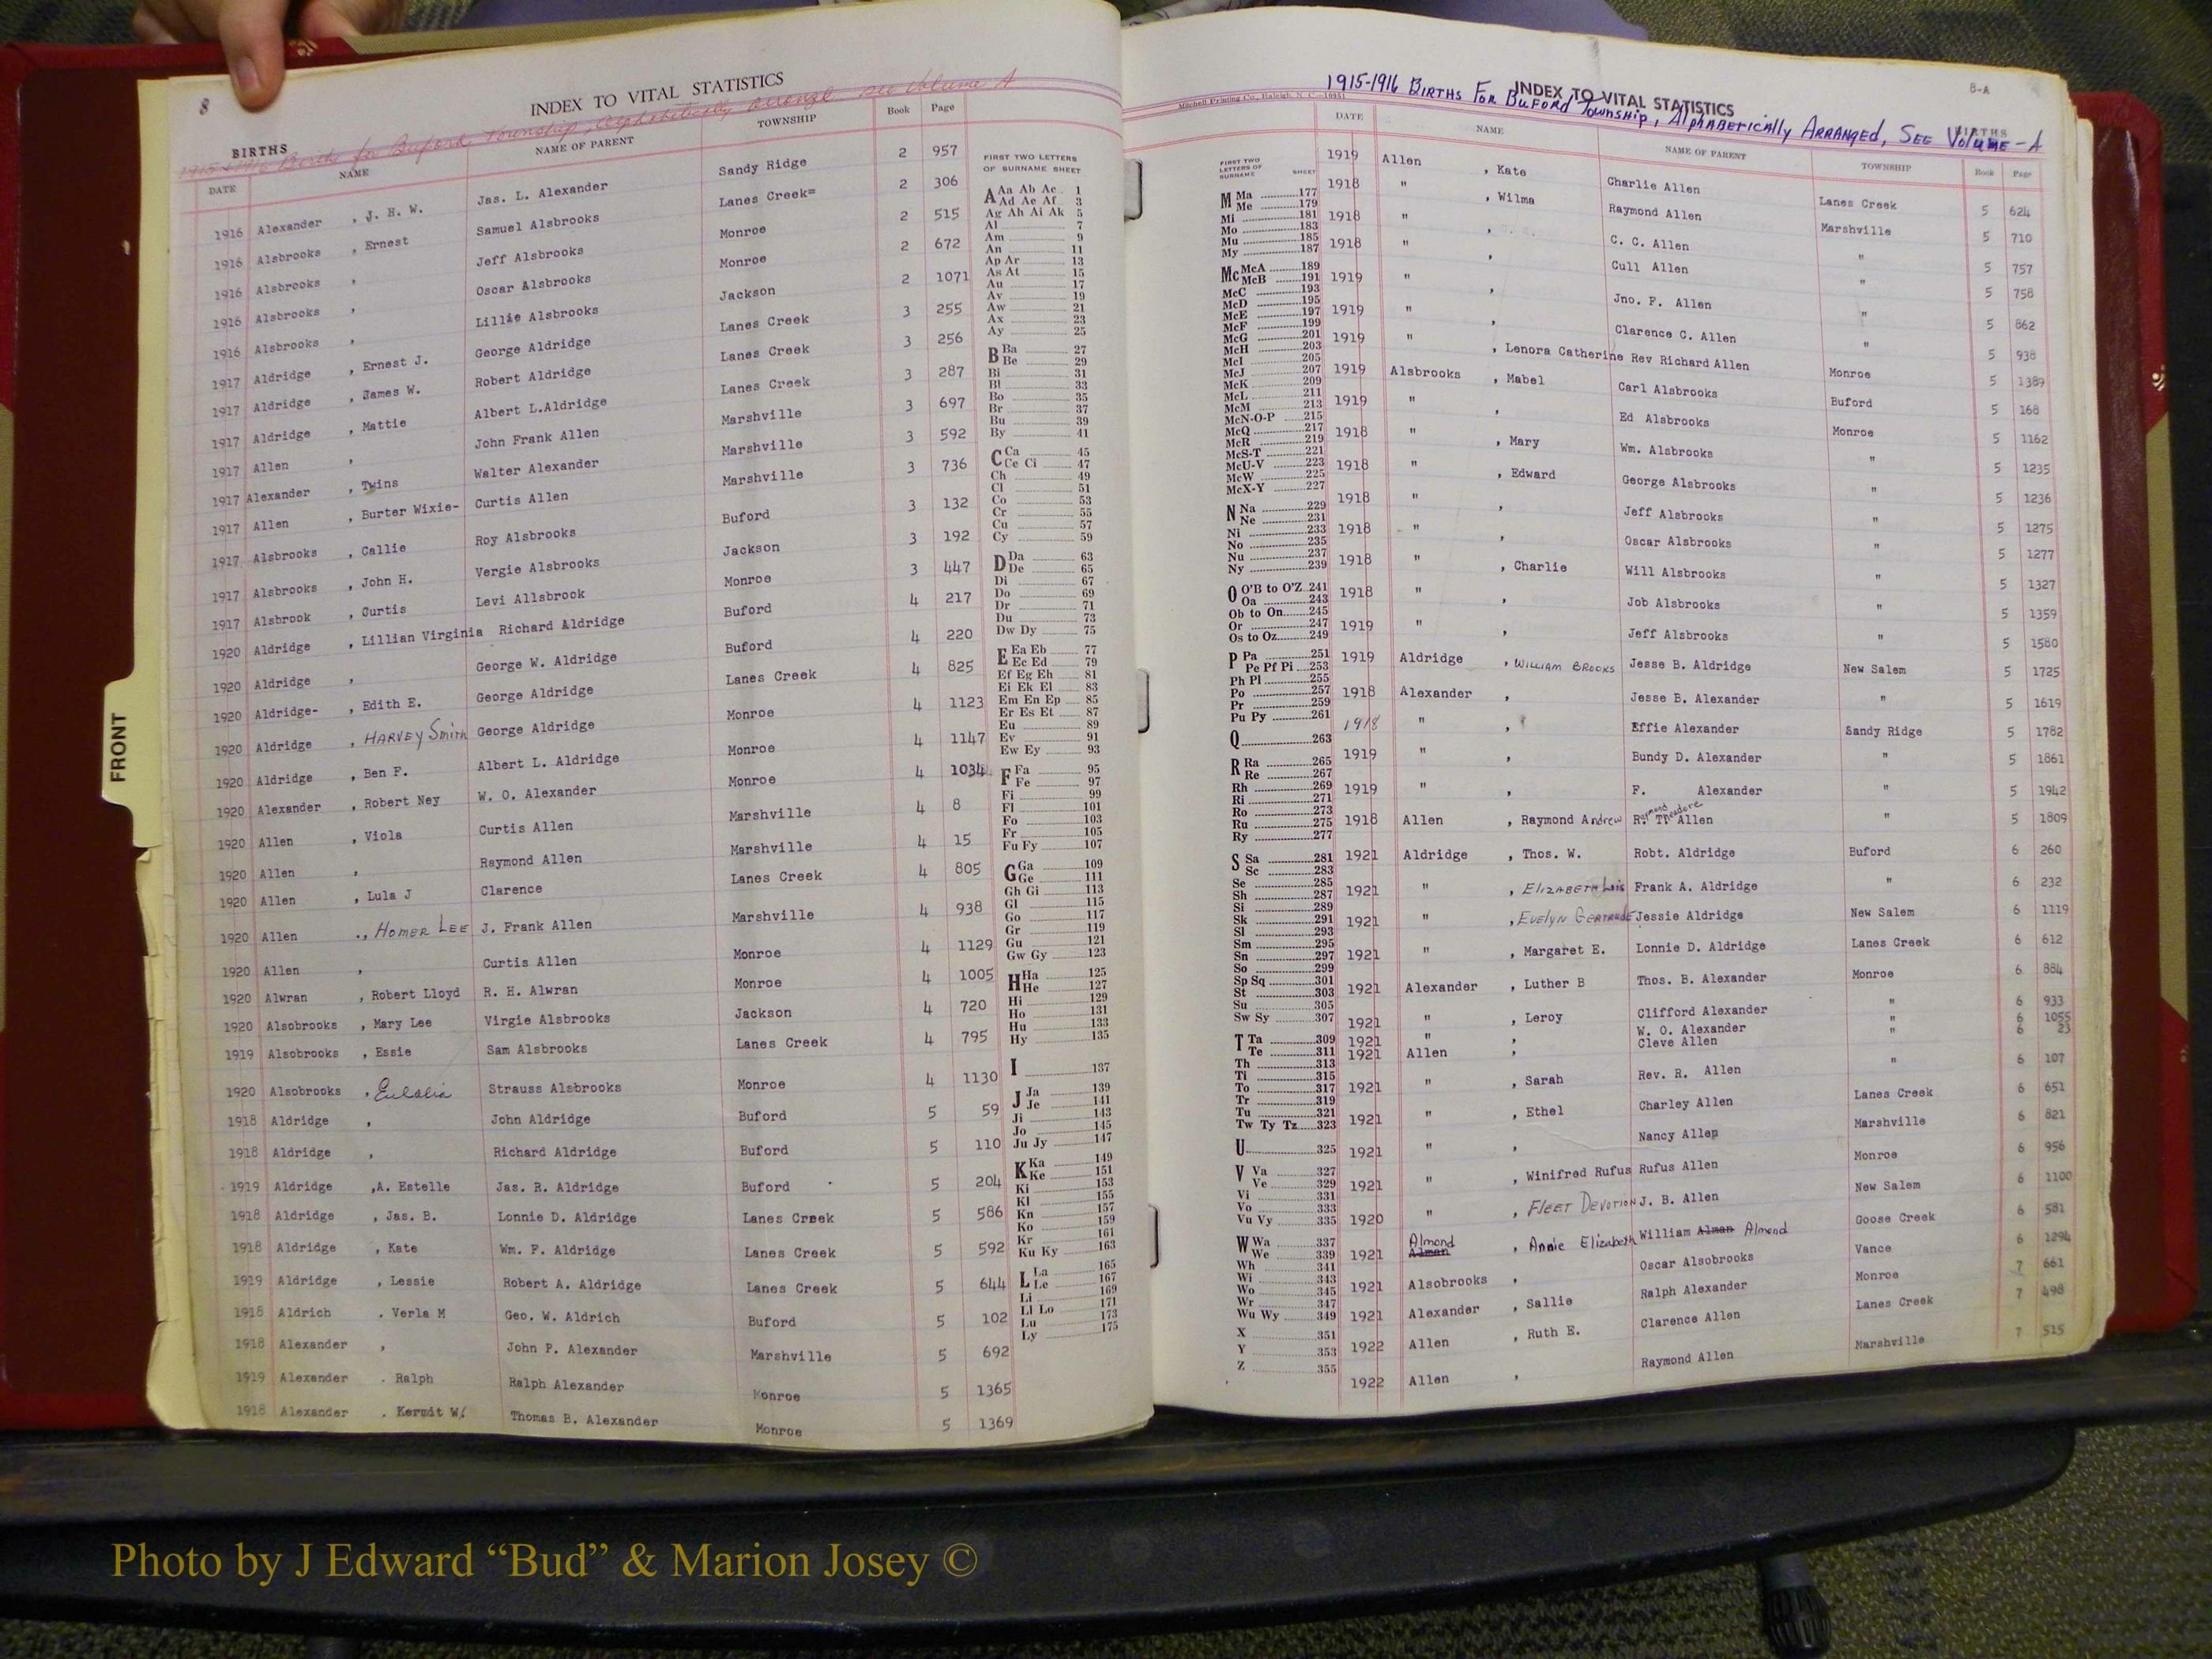 8
INDEX TO VITAL STATISTICS
1915-1916 Births for Buford Township, Alphabetically Arrange see Volume A
BIRTHS
DATE NAME NAME OF PARENT TOWNSHIP Book Page
1916 Alexander , J. H. W. Jas. L. Alexander Sandy Ridge 2 957
1916 Alsbrooks , Ernest Samuel Alsbrooks Lanes Creek= 2 306
1916 Alsbrooks , Jeff Alsbrooks Monroe 2 515
1916 Alsbrooks , Oscar Alsbrooks Monroe 2 672
1916 Alsbrooks , Lillie Alsbrooks Jackson 2 1071
1917 Aldridge , Ernest J. George Aldridge Lanes Creek 3 255
1917 Aldridge , James W. Robert Aldridge Lanes Creek 3 256
1917 Aldridge , Mattie Albert L.Aldridge Lanes Creek 3 287
1917 Allen , John Frank Allen Marshville 3 697
1917 Alexander , Twins Walter Alexander Marshville 3 592
1917 Allen , Burter Wixie- Curtis Allen Marshville 3 736
1917 Alsbrooks , Callie Roy Alsbrooks Buford 3 132
1917 Alsbrooks , John H. Vergie Alsbrooks Jackson 3 192
1917 Alsbrook , Curtis Levi Allsbrook Monroe 3 447
1920 Aldridge , Lillian Virginia Richard Aldridge Buford 4 217
1920 Aldridge , George W. Aldridge Buford 4 220
1920 Aldridge- , Edith E. George Aldridge Lanes Creek 4 825
1920 Aldridge , HARVEY Smith George Aldridge Monroe 4 1123
1920 Aldridge , Ben F. Albert L. Aldridge Monroe 4 1147
1920 Alexander , Robert Ney W. O. Alexander Monroe 4 1034
1920 Allen , Viola Curtis Allen Marshville 4 8
1920 Allen , Raymond Allen Marshville 4 15
1920 Allen , Lula J Clarence Lanes Creek 4 805
1920 Allen ., HOMER LEE J. Frank Allen Marshville 4 938
1920 Allen , Curtis Allen Monroe 4 1129
1920 Alwran , Robert Lloyd R. H. Alwran Monroe 4 1005
1920 Alsobrooks , Mary Lee Virgie Alsbrooks Jackson 4 720
1919 Alsobrooks , Essie Sam Alsbrooks Lanes Creek 4 795
1920 Alsobrooks , Eulalia Strauss Alsbrooks Monroe 4 1130
1918 Aldridge , John Aldridge Buford 5 59
1918 Aldridge , Richard Aldridge Buford 5 110
1919 Aldridge ,A. Estelle Jas. R. Aldridge Buford 5 204
1918 Aldridge , Jas. B. Lonnie D. Aldridge Lanes Creek 5 586
1918 Aldridge , Kate Wm. F. Aldridge Lanes Creek 5 592
1919 Aldridge , Lessie Robert A. Aldridge Lanes Creek 5 644
1918 Aldrich . Verla M Geo. W. Aldrich Buford 5 102
1918 Alexander , John P. Alexander Marshville 5 692
1919 Alexander . Ralph Ralph Alexander Monroe 5 1365
1918 Alexander . Kermit W. Thomas B. Alexander Monroe 5 1369
FRONT
FIRST TWO LETTERS
OF SURNAME SHEET
A Aa Ab Ac 1
Ad Ae Af 3
Ag Ah Ai Ak 5
Al 7
Am 9
An 11
Ap Ar 13
As At 15
Au 17
Av 19
Aw 21
Ax 23
Ay 25
B Ba 27
Be 29
Bi 31
Bl 33
Bo 35
Br 37
Bu 39
By 41
C Ca 45
Ce Ci 47
Ch 49
Cl 51
Co 53
Cr 55
Cu 57
Cy 59
D Da 63
De 65
Di 67
Do 69
Dr 71
Du 73
Dw Dy 75
E Ea Eb 77
Ec Ed 79
Ef Eg Eh 81
Ei Ek El 83
Em En Ep 85
Er Es Et 87
Eu 89
Ev 91
Ew Ey 93
F Fa 95
Fe 97
Fi 99
Fl 101
Fo 103
Fr 105
Fu Fy 107
G Ga 109
Ge 111
Gh Gi 113
Gl 115
Go 117
Gr 119
Gu 121
Gw Gy 123
H Ha 125
He 127
Hi 129
Ho 131
Hu 133
Hy 135
I 137
J Ja 139
Je 141
Ji 143
Jo 145
Ju Jy 147
K Ka 149
Ke 151
Ki 153
Kl 155
Kn 157
Ko 159
Kr 161
Ku Ky 163
L La 165
Le 167
Li 169
Ll Lo 171
Lu 173
Ly 175
8-A
INDEX TO VITAL STATISTICS
1915-1916 BIRTHS FOR BUFORD Township, ALPHABETICALLY ARRANGED, SEE VOLUME-A
Mitchell Printing Co., Raleigh, N. C.
BIRTHS
FIRST TWO
LETTERS OF
SURNAME SHEET
M Ma 177
Me 179
Mi 181
Mo 183
Mu 185
My 187
Mc McA 189
McB 191
McC 193
McD 195
McE 197
McF 199
McG 201
McH 203
McI 205
McJ 207
McK 209
McL 211
McM 213
McN-O-P 215
McQ 217
McR 219
McS-T 221
McU-V 223
McW 225
McX-Y 227
N Na 229
Ne 231
Ni 233
No 235
Nu 237
Ny 239
O O'B to O'Z 241
Oa 243
Ob to On 245
Or 247
Os to Oz 249
P Pa 251
Pe Pf Pi 253
Ph Pl 255
Po 257
Pr 259
Pu Py 261
Q 263
R Ra 265
Re 267
Rh 269
Ri 271
Ro 273
Ru 275
Ry 277
S Sa 281
Sc 283
Se 285
Sh 287
Si 289
Sk 291
Sl 293
Sm 295
Sn 297
So 299
Sp Sq 301
St 303
Su 305
Sw Sy 307
T Ta 309
Te 311
Th 313
Ti 315
To 317
Tr 319
Tu 321
Tw Ty Tz 323
U 325
V Va 327
Ve 329
Vi 331
Vo 333
Vu Vy 335
W Wa 337
We 339
Wh 341
Wi 343
Wo 345
Wr 347
Wu Wy 349
X 351
Y 353
Z 355
DATE NAME NAME OF PARENT TOWNSHIP Book Page
1919 Allen , Kate Charlie Allen Lanes Creek 5 624
1918 " , Wilma Raymond Allen Marshville 5 710
1918 " , C. C. Allen " 5 757
1918 " , Cull Allen " 5 758
1919 " , Jno. F. Allen " 5 862
1919 " , Clarence C. Allen " 5 938
1919 " , Lenora Catherine Rev Richard Allen Monroe 5 1389
1919 Alsbrooks , Mabel Carl Alsbrooks Buford 5 168
1919 " , Ed Alsbrooks Monroe 5 1162
1918 " , Mary Wm. Alsbrooks " 5 1235
1918 " , Edward George Alsbrooks " 5 1236
1918 " , Jeff Alsbrooks " 5 1275
1918 " , Oscar Alsbrooks " 5 1277
1918 " , Charlie Will Alsbrooks " 5 1327
1918 " , Job Alsbrooks " 5 1359
1919 " , Jeff Alsbrooks " 5 1580
1919 Aldridge , WILLIAM BROOKS Jesse B. Aldridge New Salem 5 1725
1918 Alexander , Jesse B. Alexander " 5 1619
1918 " , Effie Alexander Sandy Ridge 5 1782
1919 " , Bundy D. Alexander " 5 1861
1919 " , F. Alexander " 5 1942
1918 Allen , Raymond Andrew R. T. Allen Raymond Theadore " 5 1809
1921 Aldridge , Thos. W. Robt. Aldridge Buford 6 260
1921 " , ELIZABETH Lois Frank A. Aldridge " 6 232
1921 " , EVELYN GERTRUDE Jessie Aldridge New Salem 6 1119
1921 " , Margaret E. Lonnie D. Aldridge Lanes Creek 6 612
1921 Alexander , Luther B Thos. B. Alexander Monroe 6 884
1921 " , Leroy Clifford Alexander " 6 933
1921 " , W. O. Alexander " 6 1055
1921 Allen , Cleve Allen " 6 23
1921 " , Sarah Rev. R. Allen " 6 107
1921 " , Ethel Charley Allen Lanes Creek 6 651
1921 " , Nancy Allen Marshville 6 821
1921 " , Winifred Rufus Rufus Allen Monroe 6 956
1920 " , FLEET DEVOTION J. B. Allen New Salem 6 1100
1921 Alman Almond , Annie Elizabeth William Alman Almond Goose Creek 6 581
1921 Alsobrooks , Oscar Alsobrooks Vance 6 1294
1921 Alexander , Sallie Ralph Alexander Monroe 7 661
1922 Allen , Ruth E. Clarence Allen Lanes Creek 7 498
1922 Allen , Raymond Allen Marshville 7 515
Photo by J Edward “Bud” & Marion Josey ©